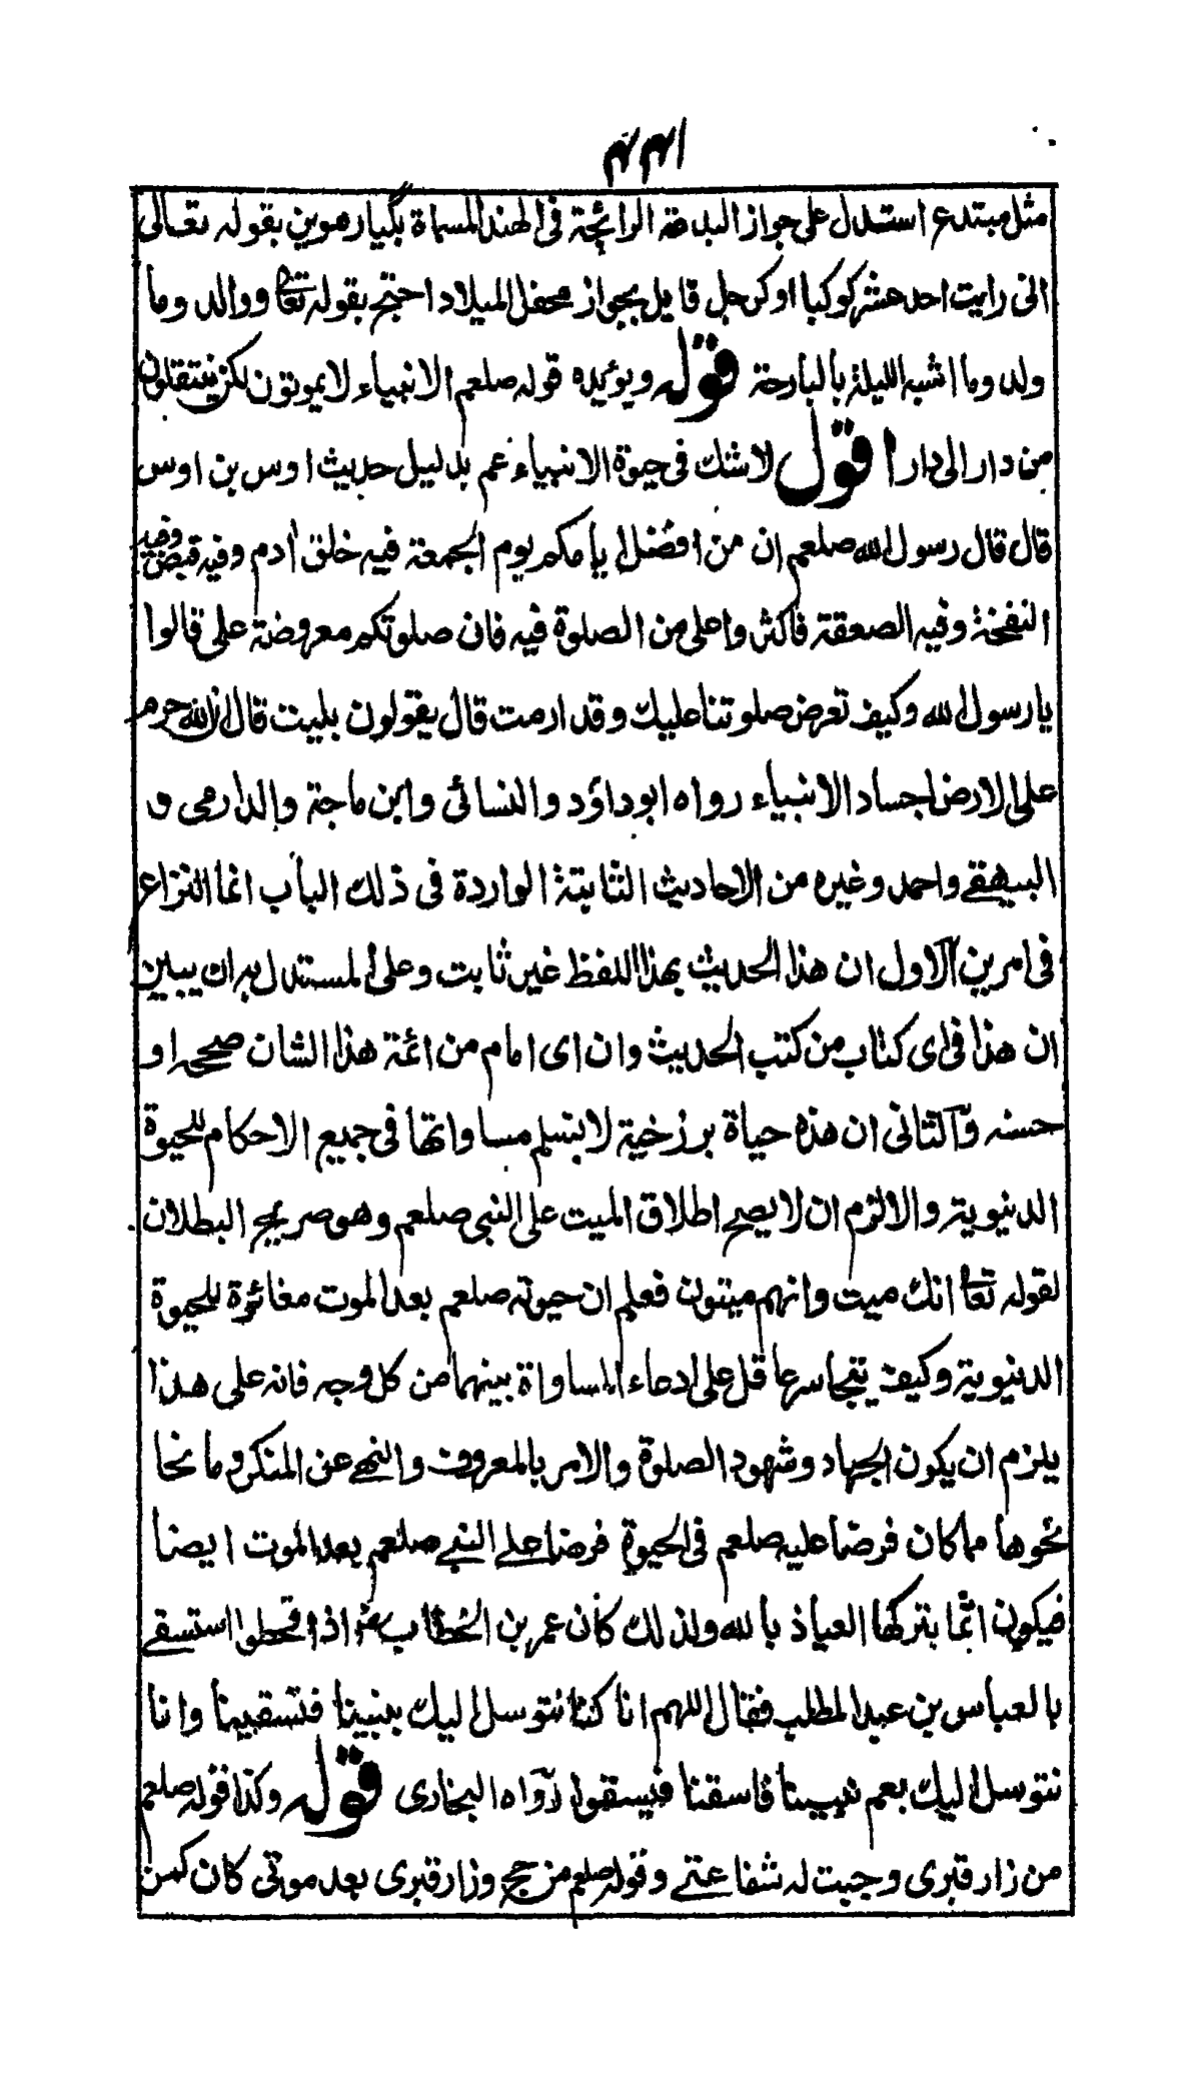 مثل مبتدع استدل على جواز البدعة الرائجة فى الهند المسماة بگيارهوين بقوله تعالى
انى رايت احد عشر كوكبا او كرجل قايل بجواز محفل الميلاد احتج بقوله تعا ووالد وما
ولد وما اشبه الليلة بالبارحة قوله ويؤيده قوله صلعم الانبياء لا يموتون لكن ينتقلون
من دار الى دار اقول لا شك فى حيوة الانبياء عم بدليل حديث اوس بن اوس
قال قال رسول الله صلعم ان من افضل ايامكم يوم الجمعة فيه خلق أدم وفيه قبض وفيه
النفخة وفيه الصعقة فاكثروا على من الصلوة فيه فان صلوتكم معروضة على قالوا
يا رسول الله وكيف تعرض صلوتنا عليك وقد ارمت قال يقولون بليت قال ان الله حرم
على الارض اجساد الانبياء رواه ابو داؤد والنسائى وابن ماجة والدارمى و
البيهقے واحمد وغيره من الاحاديث الثابتة الواردة فى ذلك الباب انما النزاع
فى امرين الاول ان هذا الحديث بهذا اللفظ غير ثابت وعلى المستدل به ان يبين
ان هذا فى اى كتاب من كتب الحديث وان اى امام من ائمة هذا الشان صححه او
حسنه والثانى ان هذه حياة برزخية لا بسلم مساواتها فى جميع الاحكام للحيوة
الدنيوية والا لزم ان لا يصح اطلاق الميت على النبى صلعم وهو صريح البطلان
لقوله تعا انك ميت وانهم ميتون فعلم ان حيوته صلعم بعد الموت مغائرة للحيوة
الدنيوية وكيف يتجاسر عاقل على ادعاء المساواة بينهما من كل وجه فانه على هذا
يلزم ان يكون الجهاد وشهود الصلوة والامر بالمعروف والنهے عن المنكر وما نحا
نحوها مما كان فرضا عليه صلعم فى الحيوة فرضا علے النبے صلعم بعد الموت ايضا
فيكون اثما بتركها العياذ بالله ولذلك كان عمر بن الخطاب رض اذا قحطوا استسقے
بالعباس بن عبد المطلب فقال اللهم انا كنا نتوسل اليك بنبينا فتسقينا وانا
نتوسل اليك بعم نبينا فاسقنا فيسقوا رواه البخارى قوله وكذا قوله صلعم
من زار قبرى وجبت له شفاعتے وقوله صلعم من حج وزار قبرى بعد موتى كان كمن